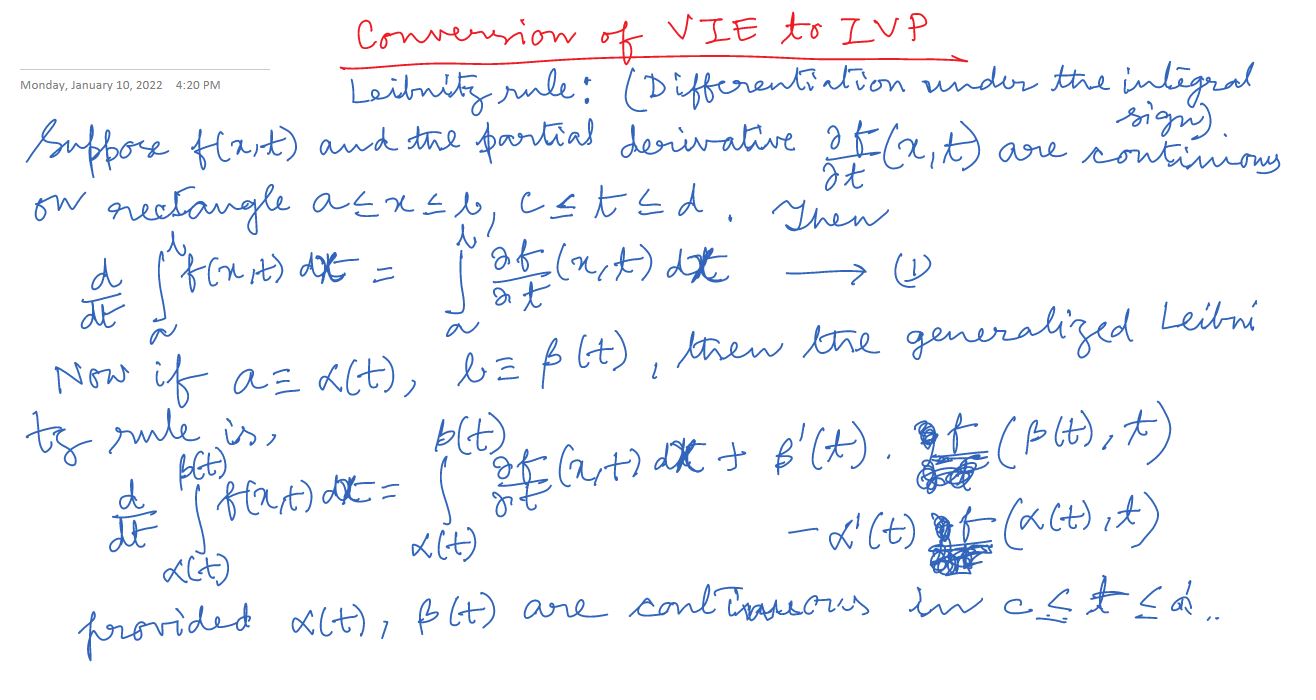 Conversion of VIE to IVP
Monday, January 10, 2022 4:20 PM
Leibnitz rule: (Differentiation under the integral
sign).
Suppose f(x,t) and the partial derivative ∂f/∂t (x,t) are continious
on rectangle a ≤ x ≤ b, c ≤ t ≤ d. Then
d/dt ∫_a^b f(x,t) dx = ∫_a^b ∂f/∂t (x,t) dx ⟶ (1)
Now if a ≡ α(t), b ≡ β(t), then the generalized Leibni
tz rule is,
d/dt ∫_{α(t)}^{β(t)} f(x,t) dx = ∫_{α(t)}^{β(t)} ∂f/∂t (x,t) dx + β'(t). f(β(t), t)
- α'(t) f(α(t), t)
provided α(t), β(t) are continuous in c ≤ t ≤ d..